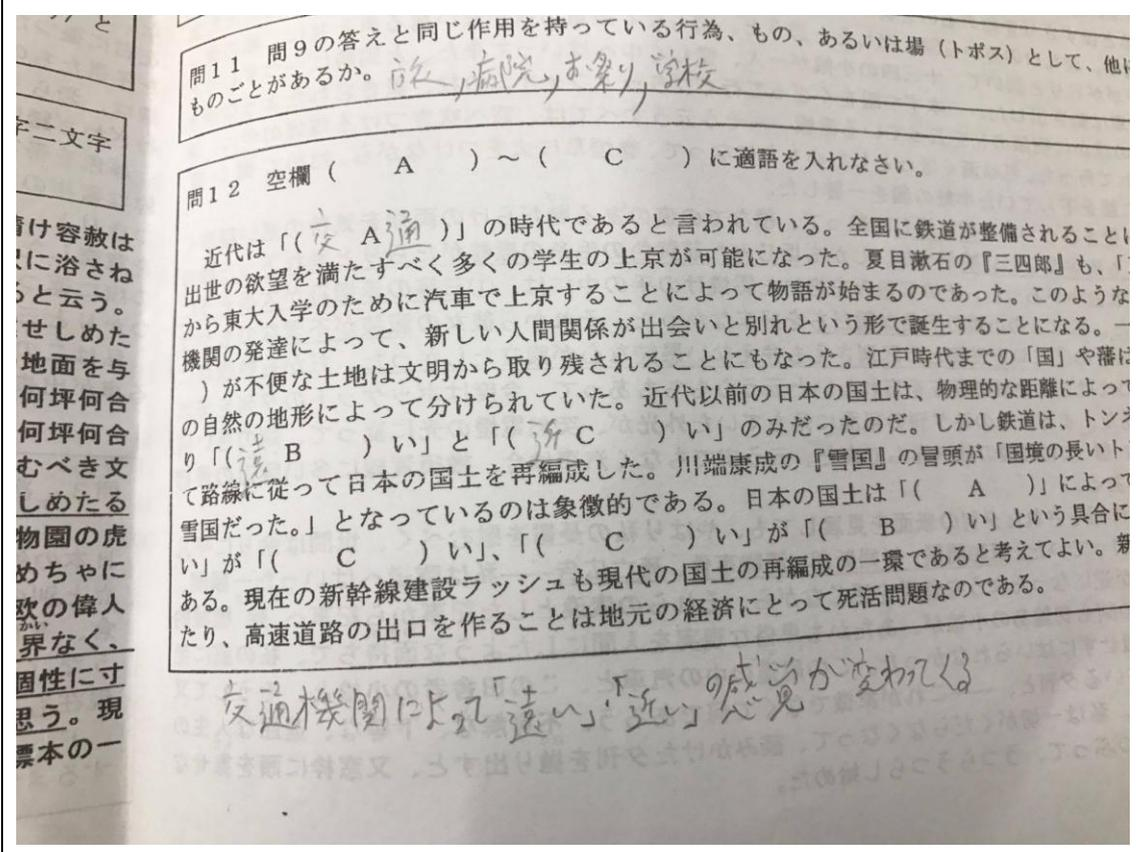 と
字二文字
着け容赦は
沢に浴さね
ると云う。
せしめた
地面を与
何坪何合
何坪何合
むべき文
しめたる
物園の虎
めちゃに
欧の偉人
界なく、
個性に寸
思う。現
標本の一
問11 問9の答えと同じ作用を持っている行為、もの、あるいは場(トポス)として、他に
ものごとがあるか。旅,病院,お祭り,学校
問12 空欄( A )~( C )に適語を入れなさい。
近代は「(交 A 通)」の時代であると言われている。全国に鉄道が整備されることに
出世の欲望を満たすべく多くの学生の上京が可能になった。夏目漱石の『三四郎』も、「
から東大入学のために汽車で上京することによって物語が始まるのであった。このような
機関の発達によって、新しい人間関係が出会いと別れという形で誕生することになる。一
)が不便な土地は文明から取り残されることにもなった。江戸時代までの「国」や藩は
の自然の地形によって分けられていた。近代以前の日本の国土は、物理的な距離によって
り「(遠 B )い」と「(近 C )い」のみだったのだ。しかし鉄道は、トンネ
て路線に従って日本の国土を再編成した。川端康成の『雪国』の冒頭が「国境の長いト
雪国だった。」となっているのは象徴的である。日本の国土は「( A )」によって
い」が「( C )い」、「( C )い」が「( B )い」という具合に
ある。現在の新幹線建設ラッシュも現代の国土の再編成の一環であると考えてよい。新
たり、高速道路の出口を作ることは地元の経済にとって死活問題なのである。
交通機関によって「遠い」・「近い」の感覚が変わってくる